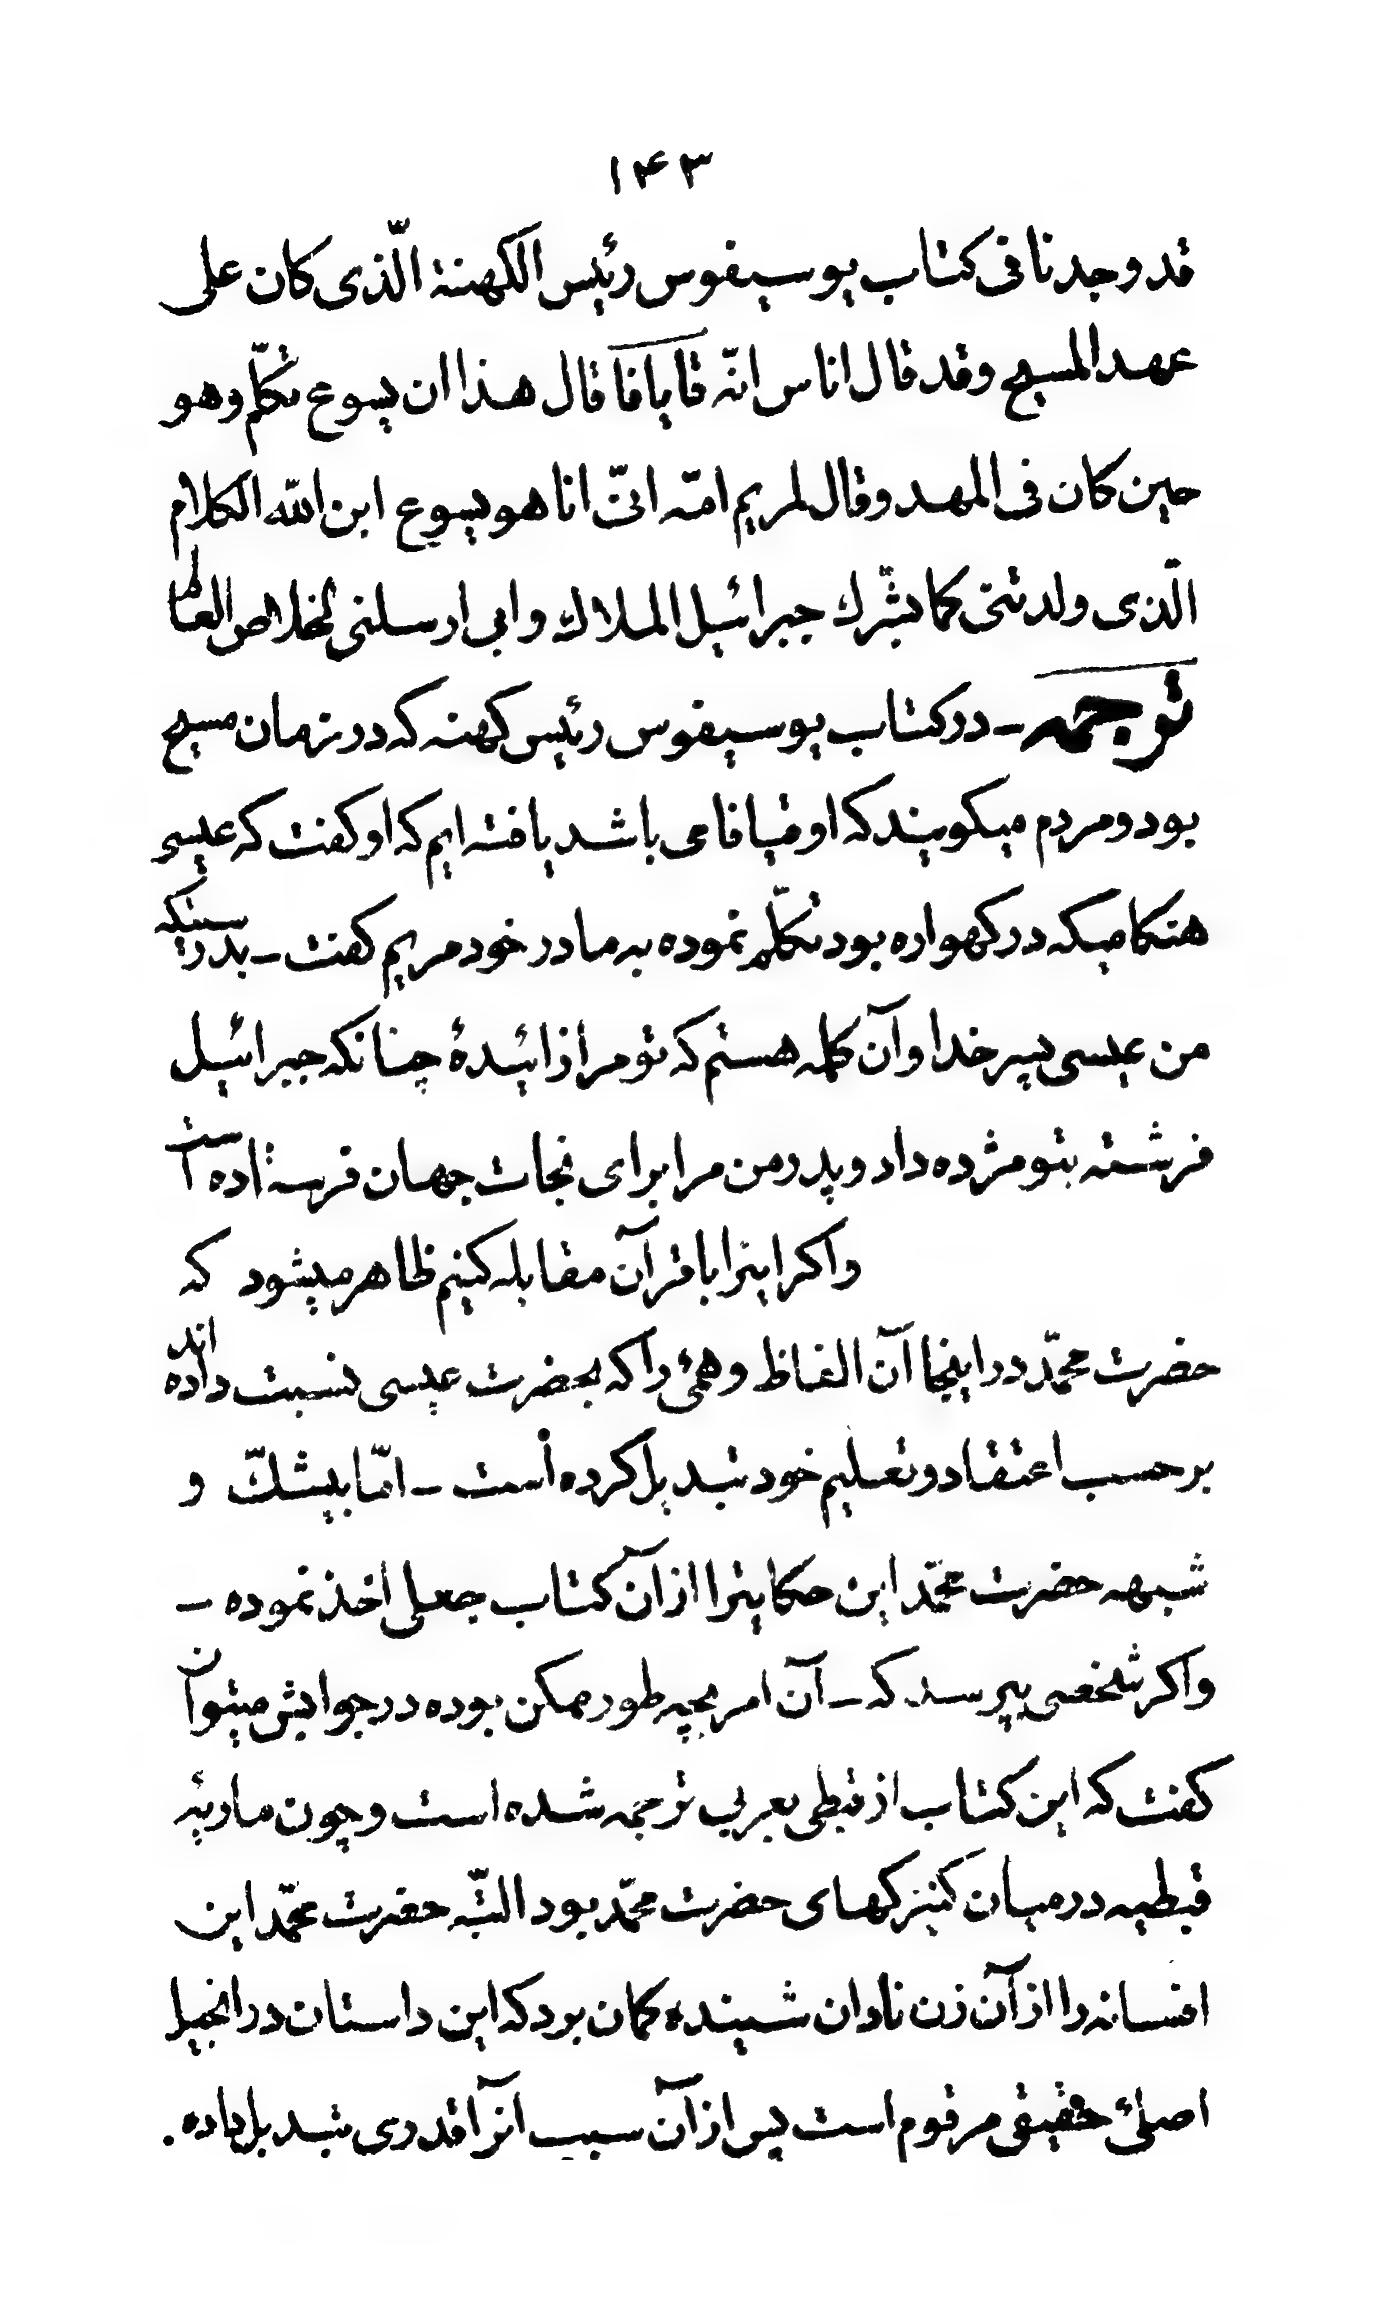 ۱۴۳
قد وجدنا فی کتاب یوسیفوس رئیس الکهنة الّذی کان علی
عهد المسیح وقد قال اناس انّه قایافا قال هذا ان یسوع تکلّم وهو
حین کان فی المهد وقال لمریم امّه انّی انا هو یسوع ابن الله الکلام
الّذی ولدتنی کما بشّرك جبرائیل الملاك وابی ارسلنی لخلاص العالم
ترجمه - در کتاب یوسیفوس رئیس کهنه که در زمان مسیح
بود و مردم میکویند که او قیافا می باشد یافته ایم که او کفت که عیسی
هنکامیکه در کهواره بود تکلّم نموده به مادر خود مریم کفت - بدرستیکه
من عیسی پسر خدا و آن کلمه هستم که تو مرا زائیدهٔ چنانکه جبرائیل
فرشته بتو مژده داد و پدر من مرا برای نجات جهان فرستاده است
واکر اینرا با قرآن مقابله کنیم ظاهر میشود که
حضرت محمّد در اینجا آن الفاظ وهمیٔ را که بحضرت عیسی نسبت داده اند
بر حسب اعتقاد و تعلیم خود تبدیل کرده است - امّا بیشكّ و
شبهه حضرت محمّد این حکایترا از آن کتاب جعلی اخذ نموده -
واکر شخصی بپرسد که - آن امر بچه طور ممکن بوده در جوابش میتوان
کفت که این کتاب از قبطی بعربی ترجمه شده است و چون ماریهٔ
قبطیه در میان کنیزکهای حضرت محمّد بود البتّه حضرت محمّد این
افسانه را از آن زن نادان شنیده کمان بود که این داستان در انجیل
اصلیٔ حقیقی مرقوم است پس از آن سبب آنرا قدری تبدیل داده.